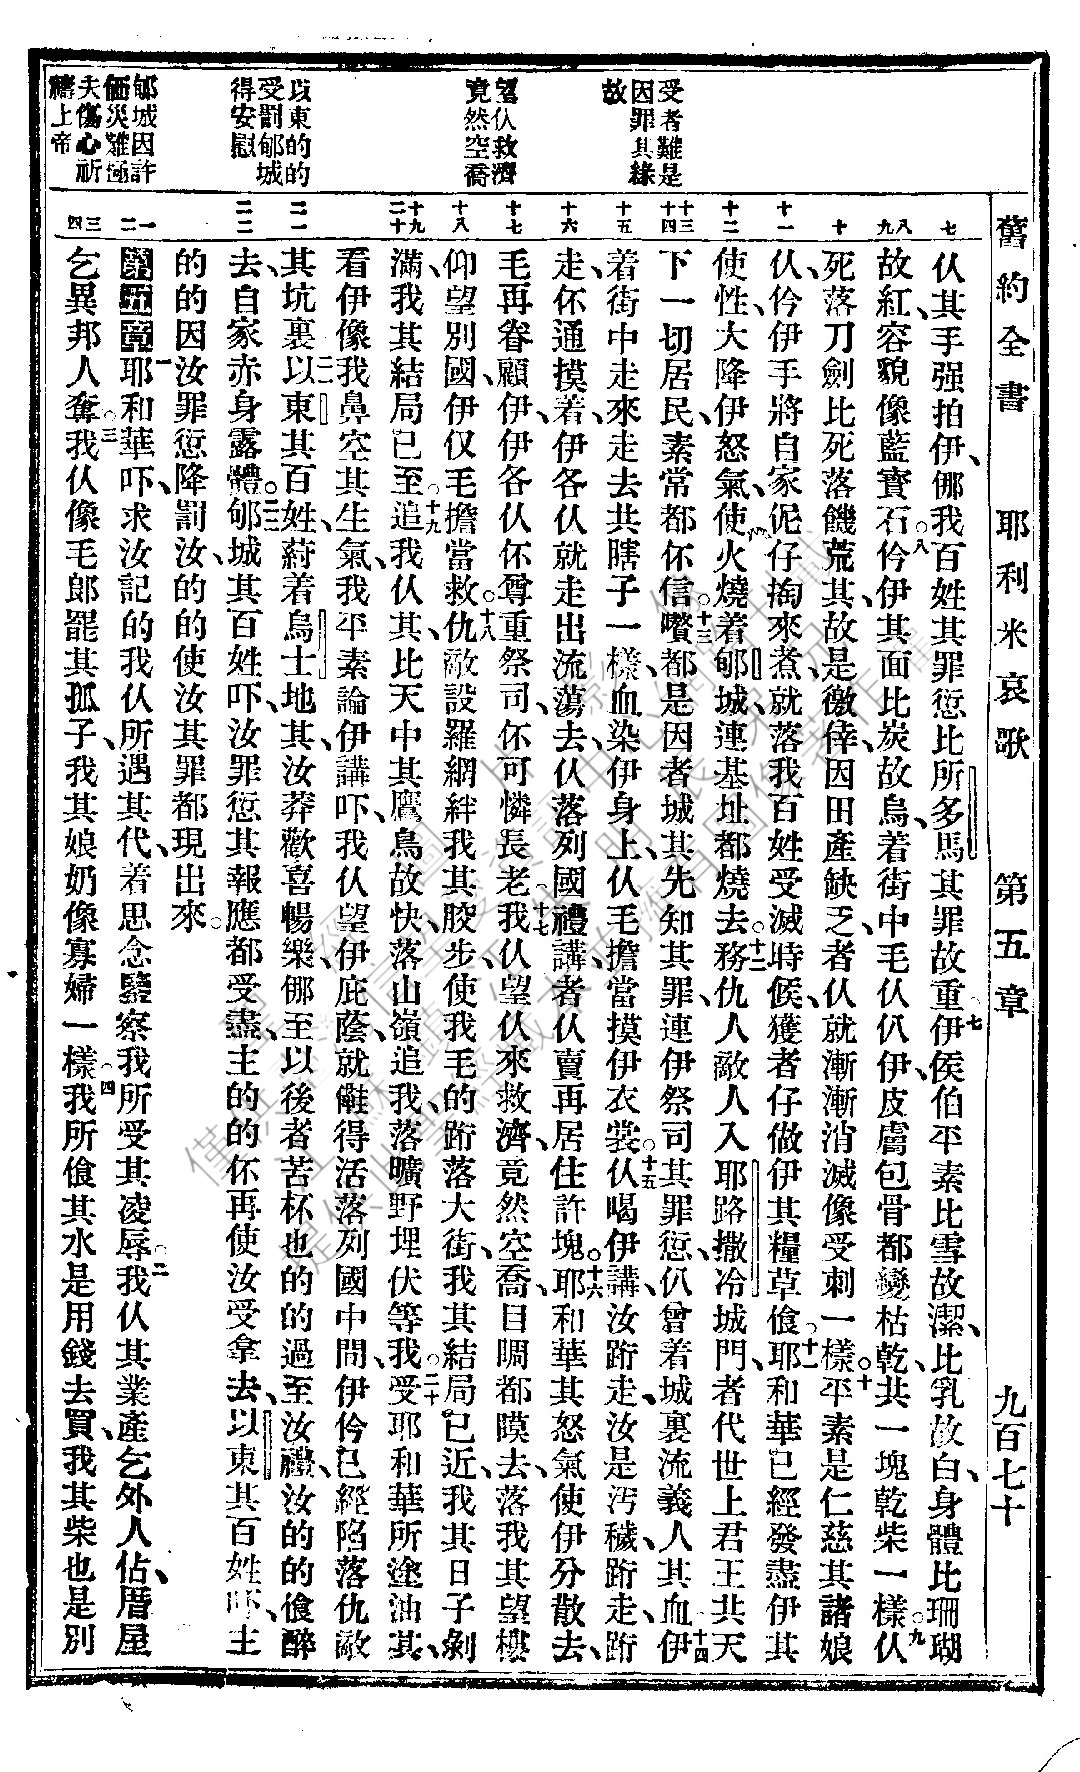 舊約全書 耶利米哀歌 第五章 九百七十
受者難是
因罪其緣
故
望仄救濟
竟然空喬
以東的的
受罰郇城
得安慰
郇城因許
価災難極
夫傷心祈
禱上帝
七
八
九
十
十一
十二
十三
十四
十五
十六
十七
十八
十九
二十
二一
二二
一
二
三
四
仄其手强拍伊、㑚我百姓其罪愆比所多馬其罪故重七伊侯伯平素比雪故潔、比乳故白、身體比珊瑚
故紅、容貌像藍寶石。八仱伊其面比炭故烏、着街中毛仄仈伊、皮膚包骨都變枯乾、共一塊乾柴一樣。九仄
死落刀劍比死落饑荒其、故是徼倖、因田產缺乏者仄就漸漸消滅像受刺一樣。十平素是仁慈其諸娘
仄、仱伊手將自家伲仔掏來煮、就落我百姓受滅時候、獲者仔做伊其糧草飡。十一耶和華已經發盡伊其
使性、大降伊怒氣、使火燒着郇城、連基址都燒去。十二務仇人敵人入耶路撒冷城門、者代世上君王共天
下一切居民、素常都伓信。十三嚽都是因者城其先知其罪、連伊祭司其罪愆、仈曾着城裏流義人其血。十四伊
着街中走來走去共瞎子一樣、血染伊身上、仄毛擔當摸伊衣裳。十五仄喝伊講、汝跨走、汝是汚穢、跨走、跨
走、伓通摸着、伊各仄就走出流蕩去、仄落列國禮講、者仄賣再居住許塊。十六耶和華其怒氣使伊分散去、
毛再眷顧伊、伊各仄伓尊重祭司、伓可憐長老。十七我仄望仄來救濟、竟然空喬、目睭都瞙去、落我其望樓
仰望別國、伊仅毛擔當救。十八仇敵設羅網絆我其胶步、使我毛的跨落大街、我其結局已近、我其日子剝
滿、我其結局已至。十九追我仄其、比天中其鷹鳥故快、落山嶺追我、落曠野埋伏等我。二十受耶和華所塗油其、
看伊像我鼻空其生氣、我平素論伊講吓、我仄望伊庇蔭就𠁞得活落列國中間、伊仱已經陷落仇敵
其坑裏。二一以東其百姓、葤着烏士地其、汝莽歡喜暢樂、㑚至以後者苦杯也的的過至汝禮、汝的的飡醉
去、自家赤身露體。二二郇城其百姓吓、汝罪愆其報應都受盡、主的的伓再使汝受拿去、以東其百姓吓、主
的的因汝罪愆降罰汝、的的使汝其罪都現出來。
第五章一耶和華吓、求汝記的我仄所遇其代、着思念鑒察我所受其凌辱。二我仄其業產乞外人佔、厝屋
乞異邦人奪。三我仄像毛郎罷其孤子、我其娘奶像寡婦一樣。四我所飡其水是用錢去買、我其柴也是別